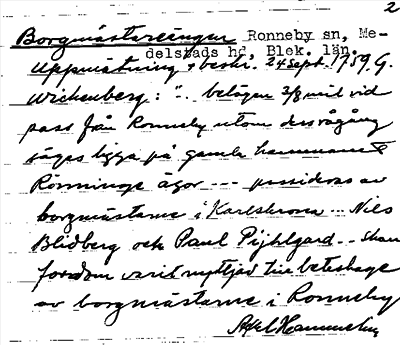 2
Borgmästareängen Ronneby sn, Me-
delstads hd, Blek. län.
Uppmätning o beskr. 24 sept. 1759. G.
Wickenberg: ".. belägen 3/8 mil vid
pass från Ronneby utom dess rågång
säges ligga på gamla
Rönninge ägor --- possideras av
borgmästarne i Karlskrona .. Nils
Blidberg och Paul Pijhlgard .. skan
fordom varit nyttjad till beteshage
av borgmästarne i Ronneby
Axel